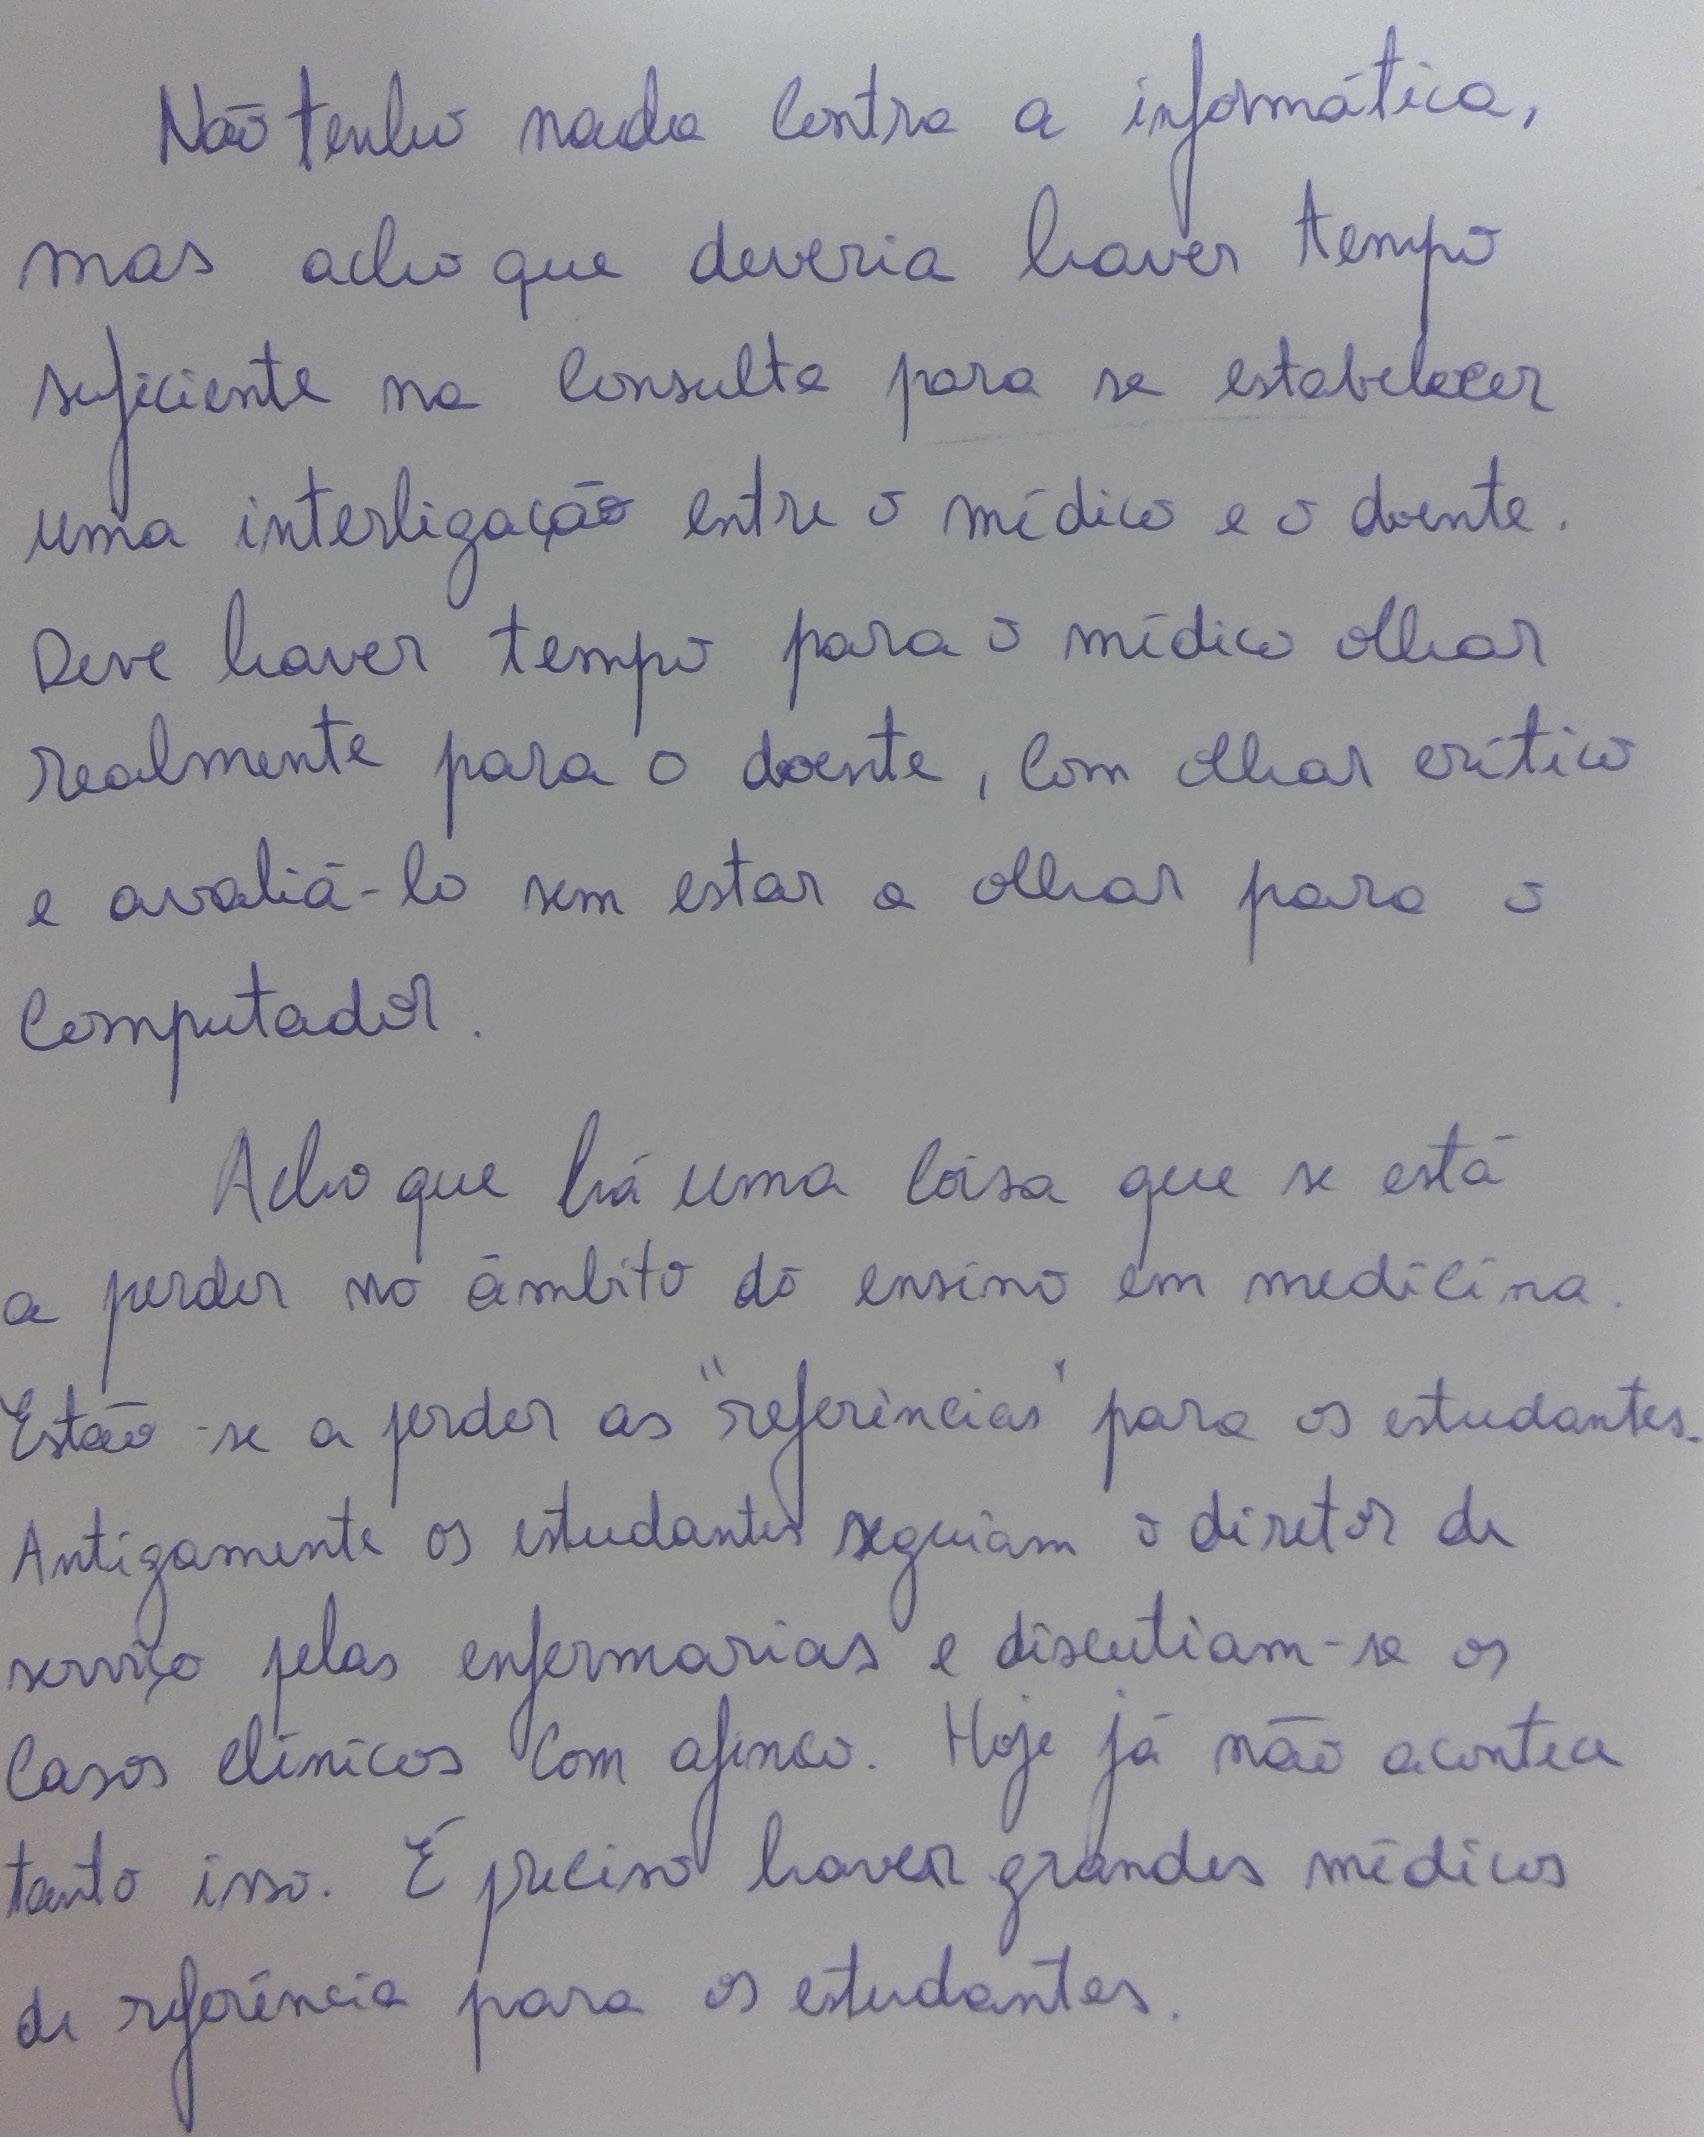 Não tenho nada contra a informática,
mas acho que deveria haver tempo
suficiente na consulta para se estabelecer
uma interligação entre o médico e o doente.
Deve haver tempo para o médico olhar
realmente para o doente, com olhar crítico
e avaliá-lo sem estar a olhar para o
computador.
Acho que há uma coisa que se está
a perder no âmbito do ensino em medicina.
Estão-se a perder as "referências" para os estudantes.
Antigamente os estudantes seguiam o diretor de
serviço pelas enfermarias e discutiam-se os
casos clínicos com afinco. Hoje já não acontece
tanto isso. É preciso haver grandes médicos
de referência para os estudantes.